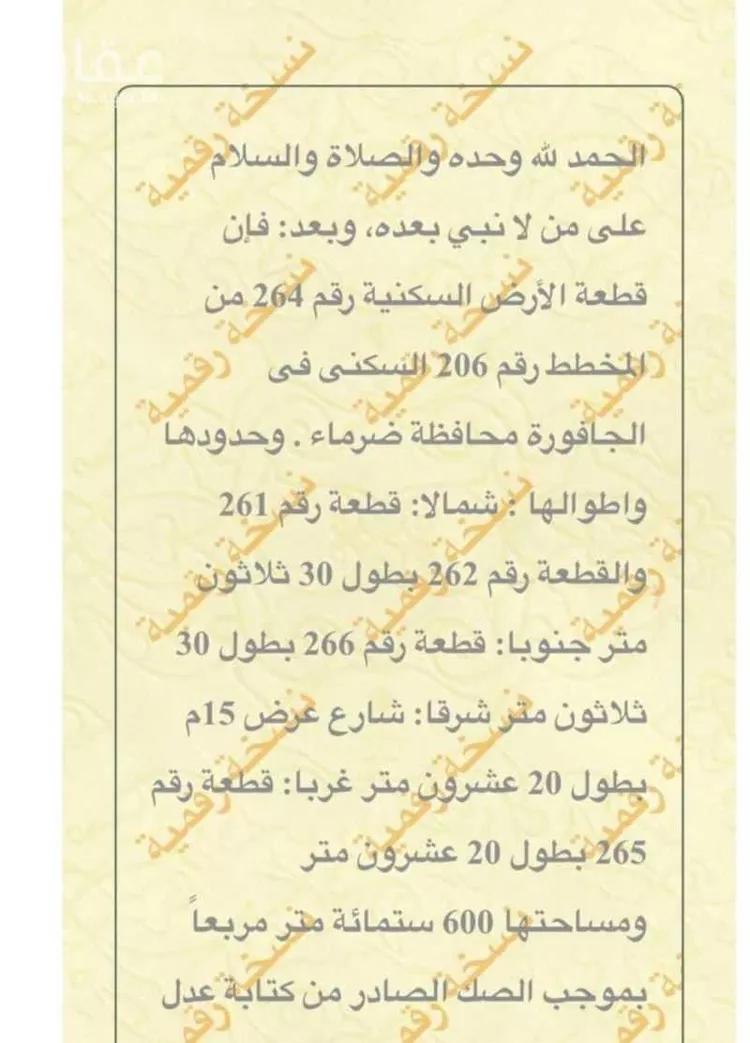 عقار
الحمد لله وحده والصلاة والسلام
على من لا نبي بعده، وبعد: فإن
قطعة الأرض السكنية رقم 264 من
المخطط رقم 206 السكنى فى
الجافورة محافظة ضرماء . وحدودها
واطوالها : شمالا: قطعة رقم 261
والقطعة رقم 262 بطول 30 ثلاثون
متر جنوبا: قطعة رقم 266 بطول 30
ثلاثون متر شرقا: شارع عرض 15م
بطول 20 عشرون متر غربا: قطعة رقم
265 بطول 20 عشرون متر
ومساحتها 600 ستمائة متر مربعاً
بموجب الصك الصادر من كتابة عدل
نسخة رقمية